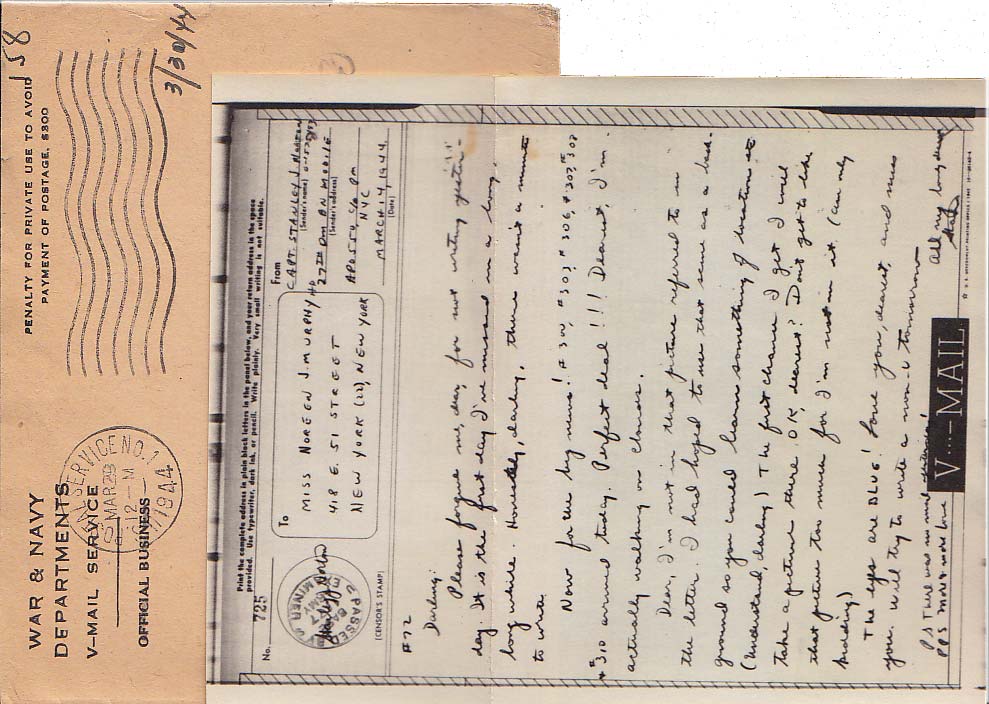 WAR & NAVY
DEPARTMENTS
V-MAIL SERVICE
OFFICIAL BUSINESS
PENALTY FOR PRIVATE USE TO AVOID
PAYMENT OF POSTAGE, $300
SERVICE NO. 1
MAR 29
12 - M
1944
58
3/30/44
Print the complete address in plain block letters in the panel below, and your return address in the space
provided. Use typewriter, dark ink, or pencil. Write plainly. Very small writing is not suitable.
No. 725
PASSED
BY
EXAMINER
BASE
ARMY
(CENSOR'S STAMP)
To
MISS NOREEN J. MURPHY
418 E. 51 STREET
NEW YORK (22), NEW YORK
From
CAPT. STANLEY J.
(Sender's name)
HQ 27TH QM BN MOBILE
(Sender's address)
APO 550 C/O PM
NYC
MARCH 14, 1944
(Date)
#72
Darling:
Please forgive me, dear, for not writing yester-
day. It is the first day I've missed in a long,
long while. Honestly, darling, there wasn't a minute
to write.
Now for the big news! #300, #303, #306, #307, #308
+ #310 arrived today. Perfect deal!!! Dearest, I'm
actually walking on clouds.
Dear, I'm not in that picture referred to in
the letter. I had hoped to use that same as a back-
ground so you could learn something of locations etc
(Understand, darling) The first chance I get I will
take a picture there OK, dearest? Don't get to like
that picture too much for I'm not in it. (am only
kidding)
The eyes are BLUE! Love you, dearest, and miss
you. Will try to write a non-v tomorrow
All my love, dear
Stan
PS There was no mail
PPS more & more love
V···—MAIL
U. S. GOVERNMENT PRINTING OFFICE : 1943